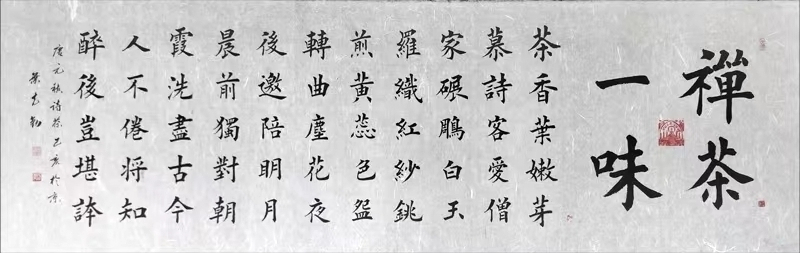 禪茶
一味
茶香葉嫩芽
慕詩客愛僧
家碾鵰白玉
羅織紅紗銚
煎黄蕊色盌
轉曲塵花夜
後邀陪明月
晨前獨對朝
霞洗盡古今
人不倦将知
醉後豈堪誇
唐元稹诗茶己亥於京